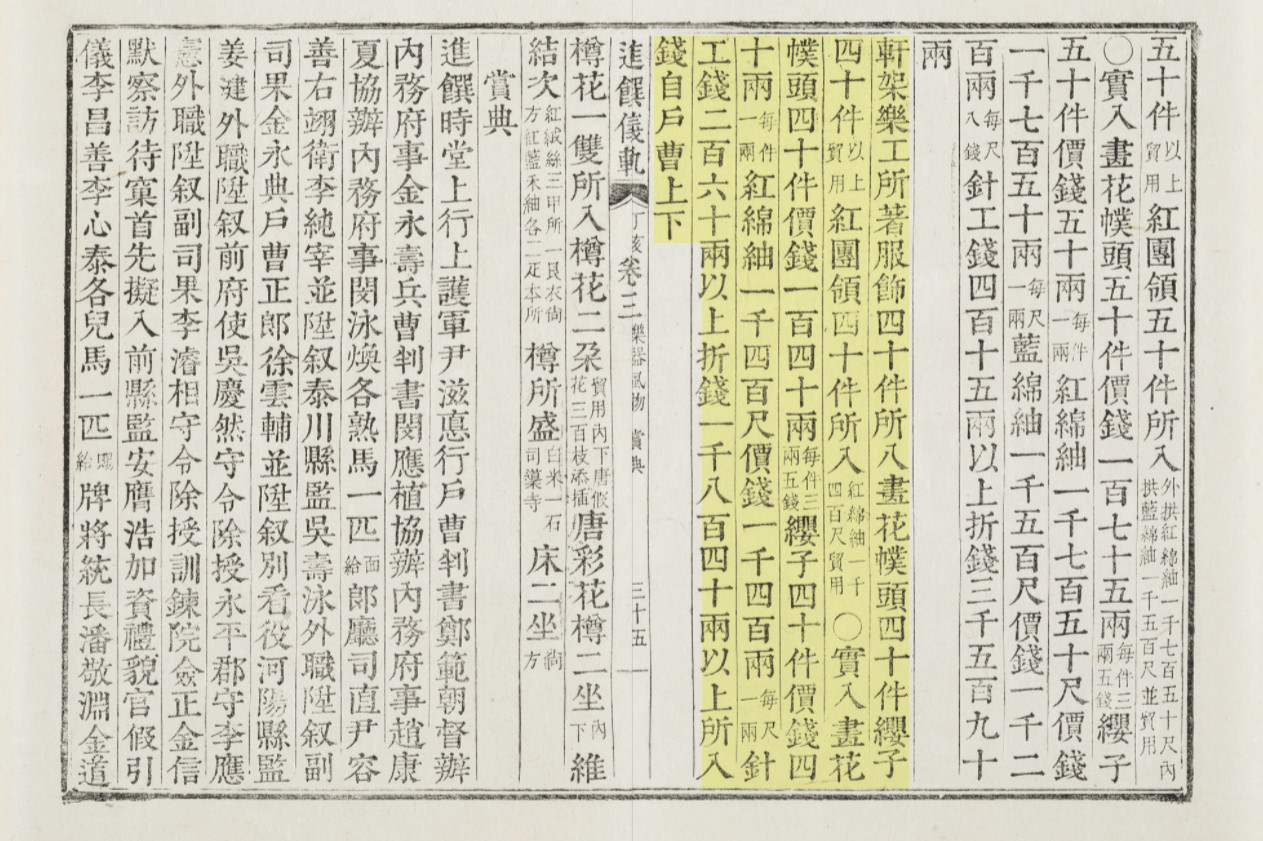 五十件以上貿用紅團領五十件所入外拱紅綿紬一千七百五十尺內拱藍綿紬一千五百尺並貿用
○實入畫花幞頭五十件價錢一百七十五兩每件三兩五錢纓子
五十件價錢五十兩每件一兩紅綿紬一千七百五十尺價錢
一千七百五十兩每尺一兩藍綿紬一千五百尺價錢一千二
百兩每尺八錢針工錢四百十五兩以上折錢三千五百九十
兩
軒架樂工所著服飾四十件所入畫花幞頭四十件纓子
四十件以上貿用紅團領四十件所入紅綿紬一千四百尺貿用○實入畫花
幞頭四十件價錢一百四十兩每件三兩五錢纓子四十件價錢四
十兩每件一兩紅綿紬一千四百尺價錢一千四百兩每尺一兩針
工錢二百六十兩以上折錢一千八百四十兩以上所入
錢自戶曹上下
進饌儀軌 丁亥 卷三 樂器風物 賞典 三十五
樽花一雙所入樽花二朶貿用內下唐假花三百枝添揷唐彩花樽二坐內下維
結次紅絨絲三甲所一艮衣 方紅藍禾紬各二疋本所樽所盛白米一石司䆃寺床二坐尙方
賞典
進饌時堂上行上護軍尹滋悳行戶曹判書鄭範朝督辦
內務府事金永壽兵曹判書閔應植協辦內務府事趙康
夏協辦內務府事閔泳煥各熟馬一匹面給郞廳司直尹容
善右翊衛李純宰並陞叙泰川縣監吳壽泳外職陞叙副
司果金永典戶曹正郎徐雲輔並陞叙別看役河陽縣監
姜湕外職陞叙前府使吳慶然守令除授永平郡守李應
憲外職陞叙副司果李濬相守令除授訓鍊院僉正金信
默察訪待窠首先擬入前縣監安膺浩加資禮貌官假引
儀李昌善李心泰各兒馬一匹賜給牌將統長潘敬淵金道